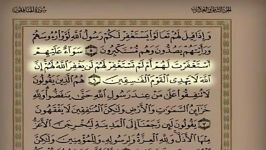 سُورَةُ المُنَافِقُون الجُزْءُ الثَّامِنُ وَالعِشْرُونَ
وَإِذَا قِيلَ لَهُمْ تَعَالَوْا۟ يَسْتَغْفِرْ لَكُمْ رَسُولُ ٱللَّهِ لَوَّوْا۟ رُءُوسَهُمْ
وَرَأَيْتَهُمْ يَصُدُّونَ وَهُم مُّسْتَكْبِرُونَ ٥ سَوَآءٌ عَلَيْهِمْ
أَسْتَغْفَرْتَ لَهُمْ أَمْ لَمْ تَسْتَغْفِرْ لَهُمْ لَن يَغْفِرَ ٱللَّهُ لَهُمْ إِنَّ
ٱللَّهَ لَا يَهْدِى ٱلْقَوْمَ ٱلْفَٰسِقِينَ ٦ هُمُ ٱلَّذِينَ يَقُولُونَ
لَا تُنفِقُوا۟ عَلَىٰ مَنْ عِندَ رَسُولِ ٱللَّهِ حَتَّىٰ يَنفَضُّوا۟ وَلِلَّهِ
خَزَآئِنُ ٱلسَّمَٰوَٰتِ وَٱلْأَرْضِ وَلَٰكِنَّ ٱلْمُنَٰفِقِينَ لَا يَفْقَهُونَ
٧ يَقُولُونَ لَئِن رَّجَعْنَآ إِلَى ٱلْمَدِينَةِ لَيُخْرِجَنَّ ٱلْأَعَزُّ
مِنْهَا ٱلْأَذَلَّ وَلِلَّهِ ٱلْعِزَّةُ وَلِرَسُولِهِۦ وَلِلْمُؤْمِنِينَ وَلَٰكِنَّ